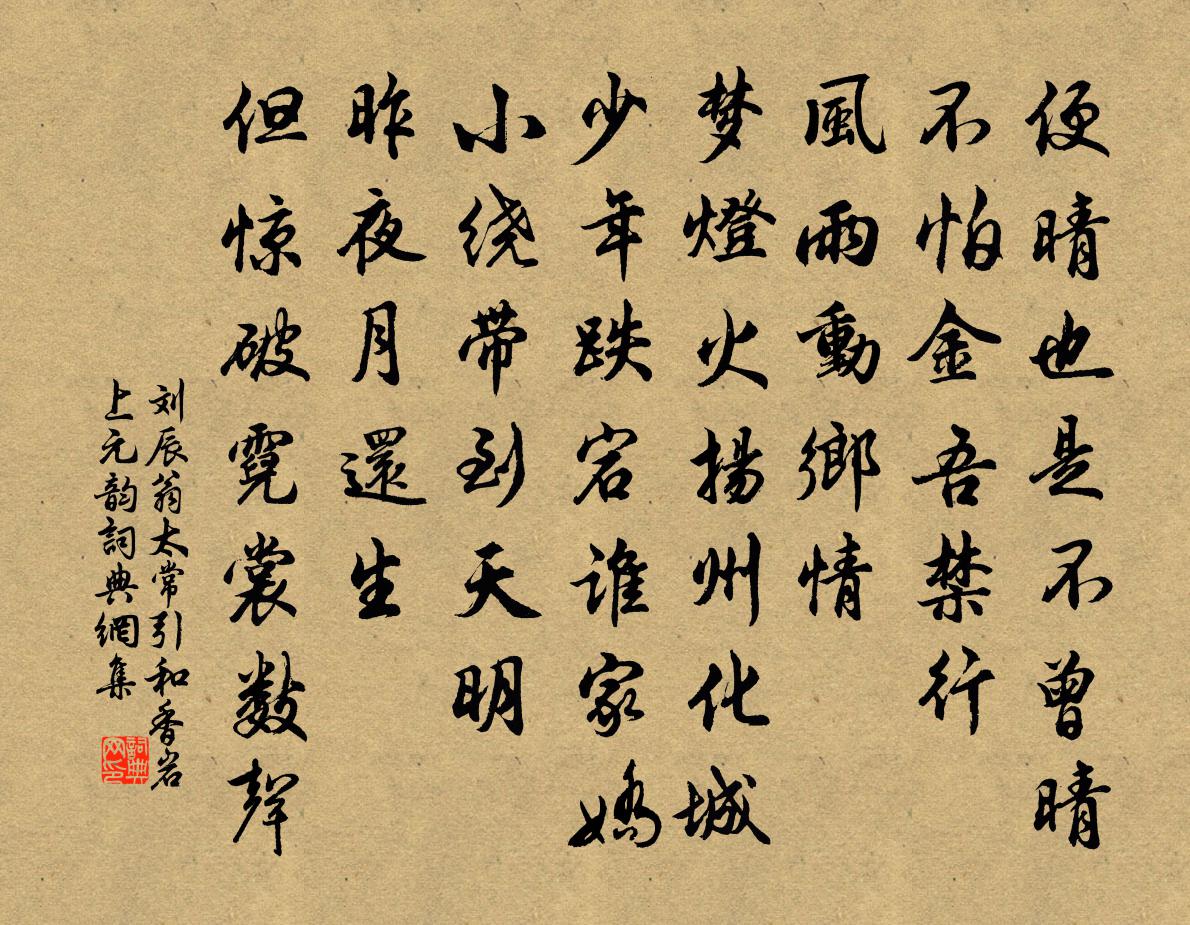 便晴也是不曾晴
不怕金吾禁行
風雨動鄉情
梦燈火揚州化城
少年跌宕谁家嬌
小绕带到天明
昨夜月還生
但惊破霓裳数聲
刘辰翁太常引和香岩
上元韵詞典網集
詞典
网印